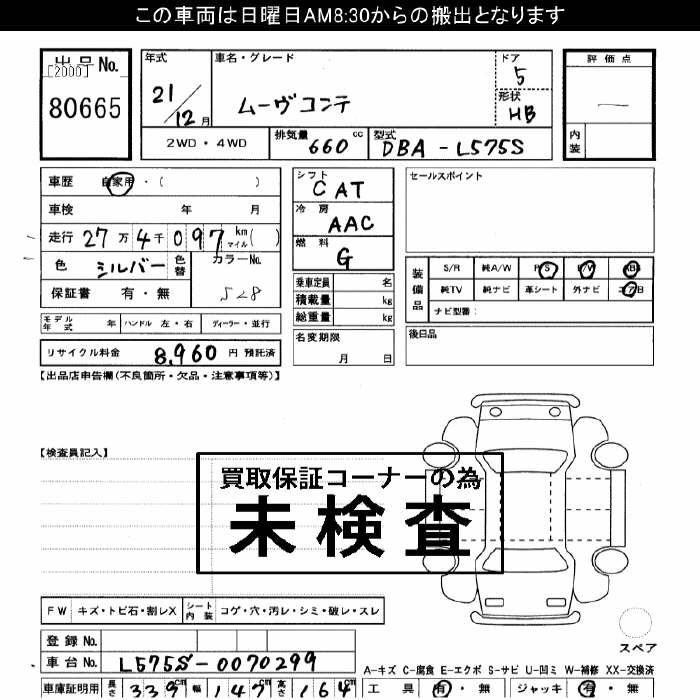 この車両は日曜日AM8:30からの搬出となります
出品 No.
[2000]
80665
年式 21/12月
車名・グレード ムーヴコンテ
ドア 5
形状 HB
2WD・4WD
排気量 660 cc
型式 DBA-L575S
評価点 —
内装
車歴 自家用・( )
車検 年 月
走行 27万4千097 km マイル( )
色 シルバー 色替 カラーNo. S28
保証書 有・無
モデル年式 年 ハンドル 左・右 ディーラー・並行
リサイクル料金 8,960 円 預託済
シフト CAT
冷房 AAC
燃料 G
乗車定員 名
積載量 kg
総重量 kg
名変期限
月 日
セールスポイント
装備品 S/R 純A/W P/S P/W ABS
純TV 純ナビ 革シート 外ナビ エアB
ナビ型番:
後日品
【出品店申告欄(不良箇所・欠品・注意事項等)】
【検査員記入】
買取保証コーナーの為
未検査
FW キズ・トビ石・割レX シート内装 コゲ・穴・汚レ・シミ・破レ・スレ
スペア
登録 No.
車台 No. L575S-0070299
A-キズ C-腐食 E-エクボ S-サビ U-凹ミ W-補修 XX-交換済
車庫証明用 長さ 339cm 幅 147cm 高さ 164cm
工具 有・無 ジャッキ 有・無